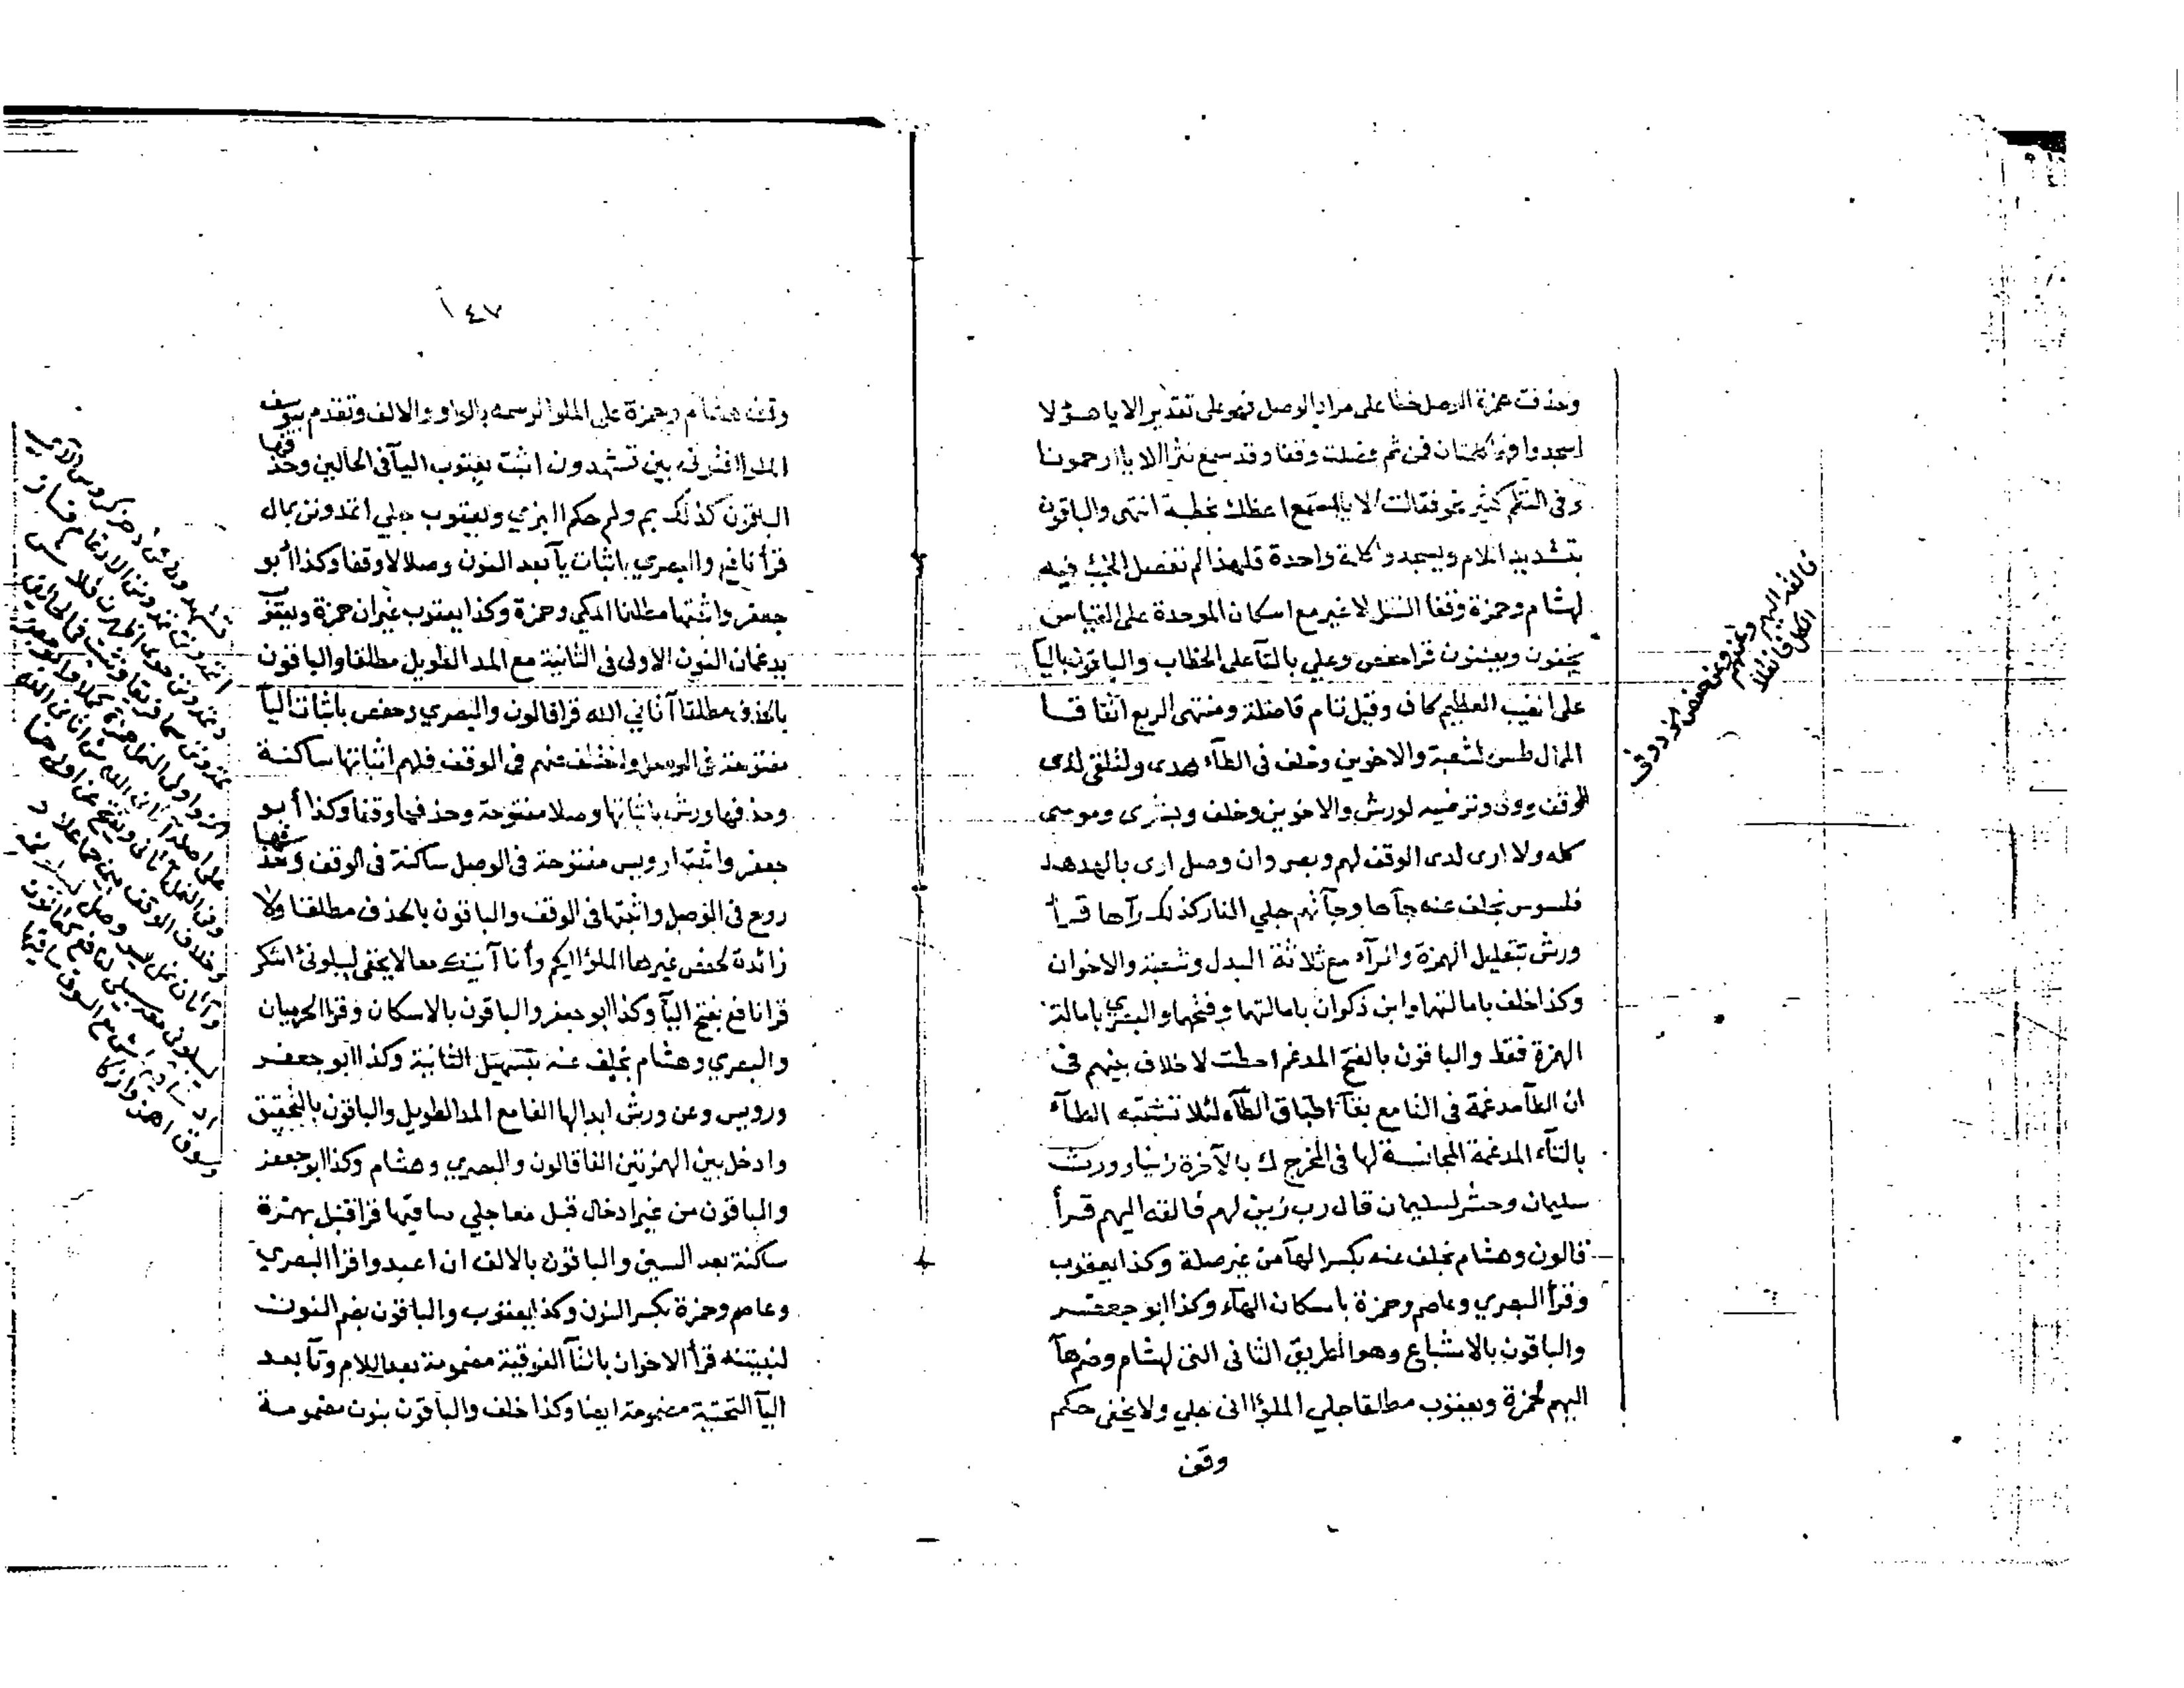 وحذفت همزة الوصل خطا على مراد الوصل فهو على تقدير الا يا هؤلا
اسجدوا فهما كلمتان فمن ثم فصلت وقفا وقد سمع نثرا الا يا ارحمونا
وفي النظم كثير نحو فقالت الا يا اسمع اعظك بخطبة انتهى والباقون
بتشديد اللام ويسجدوا كلمة واحدة فلهذا لم تفصل الخبء فيه
لهشام وحمزة وقفا النقل لا غير مع اسكان الموحدة على القياس
يخفون ويعلنون قرا حفص وعلي بالتآ على الخطاب والباقون باليآ
على الغيب العظيم كاف وقيل تام فاصلة ومنتهى الربع اتفاقا
الممال طس لشعبة والاخوين وخلف في الطآء هدى ولتلقى لدى
الوقف وولى وترضيه لورش والاخوين وخلف وبشرى وموسى
كله ولا ارى لدى الوقف لهم وبصر وان وصل ارى بالهدهد
فلسوس بخلف عنه جآها وجآءهم جلي النار كذلك رآها قرأ
ورش بتقليل الهمزة والرآء مع ثلاثة البدل وشعبة والاخوان
وكذا خلف بامالتهما وابن ذكوان بامالتهما وفتحهما والبصري بامالة
الهمزة فقط والباقون بالفتح المدغم احطت لا خلاف بينهم في
ان الطآ مدغمة في التا مع بقآء اطباق الطآء لئلا تشتبه الطآء
بالتآء المدغمة المجانسة لها في المخرج ك بالآخرة زينا وورث
سليمان وحشر لسليمان قال رب زين لهم فالقه اليهم قرأ
قالون وهشام بخلف عنه بكسر الهآ من غير صلة وكذا يعقوب
وقرأ البصري وعاصم وحمزة باسكان الهآء وكذا ابو جعفر
والباقون بالاشباع وهو الطريق الثاني التي لهشام وضم هآ
اليهم لحمزة ويعقوب مطلقا جلي الملؤا اني جلي ولا يخفى حكم
وقف
فالقه اليهم
اتكل فانقلا
١٤٧
وقف هشام وحمزة على الملؤا لرسمه بالواو والالف وتقدم بيوسف
الملؤا افتوني بين تشهدون اثبت يعقوب اليآ في الحالين وحذفها
الباقون كذلك بم ولم حكم البزي ويعقوب جلي اتمدونن بمال
قرأ نافع والبصري باثبات يآ بعد النون وصلا لا وقفا وكذا ابو
جعفر واثبتها مطلقا المكي وحمزة وكذا يعقوب غير ان حمزة ويعقوب
يدغمان النون الاولى في الثانية مع المد الطويل مطلقا والباقون
بالحذف مطلقا آتاني الله قرا قالون والبصري وحفص باثبات اليآ
مفتوحة في الوصل واختلف عنهم في الوقف فلهم اثباتها ساكنة
وحذفها ورش باثباتها وصلا مفتوحة وحذفها وقفا وكذا أبو
جعفر واثبتها رويس مفتوحة في الوصل ساكنة في الوقف وحذفها
روح في الوصل واثبتها في الوقف والباقون بالحذف مطلقا ولا
زائدة لحفص غيرها الملؤا ايكم وأنا آتيك معا لا يخفى ليبلوني ءاشكر
قرا نافع بفتح اليآ وكذا ابو جعفر والباقون بالاسكان وقرا الحرميان
والبصري وهشام بخلف عنه بتسهيل الثانية وكذا ابو جعفر
ورويس وعن ورش ابدالها الفا مع المد الطويل والباقون بالتحقيق
وادخل بين الهمزتين الفا قالون والبصري وهشام وكذا ابو جعفر
والباقون من غير ادخال قيل معا جلي ساقيها قرا قنبل بهمزة
ساكنة بعد السين والباقون بالالف ان اعبدوا قرا البصري
وعاصم وحمزة بكسر النون وكذا يعقوب والباقون بضم النون
لنبيتنه قرأ الاخوان بالتآ الفوقية مضمومة بعد اللام وتآ بعد
اليآ التحتية مضمومة ايضا وكذا خلف والباقون بنون مضمومة